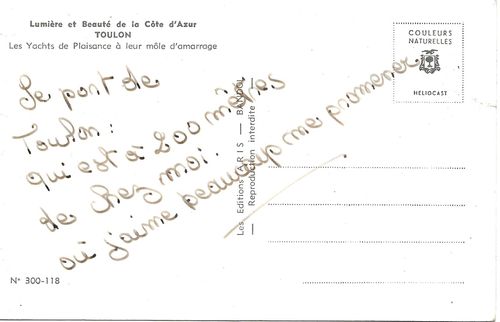 Lumière et Beauté de la Côte d'Azur
TOULON
Les Yachts de Plaisance à leur môle d'amarrage
COULEURS
NATURELLES
HELIOCAST
Le port de
Toulon :
qui est à 200 mètres
de chez moi.
où j'aime beaucoup me promener
Les Editions "ARIS — BANDOL
— Reproduction interdite —
N° 300-118